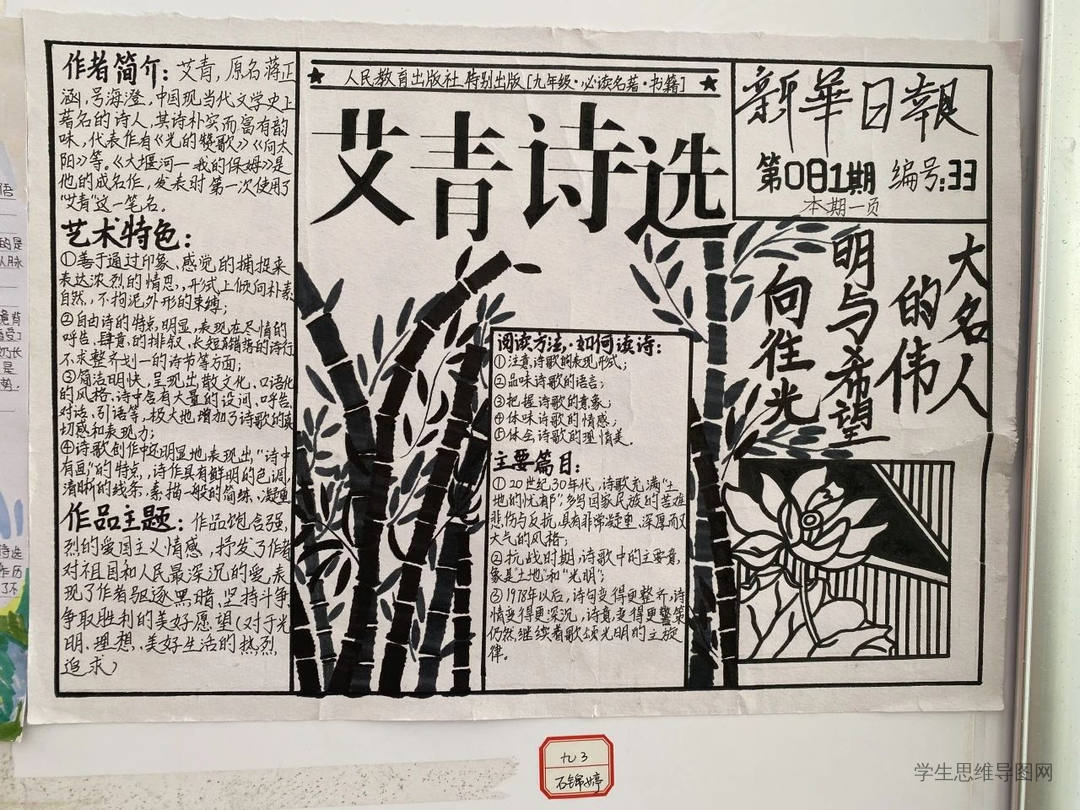 作者简介：艾青，原名蒋正
涵，号海澄，中国现当代文学史上
著名的诗人，其诗朴实而富有韵
味，代表作有《光的赞歌》《向太
阳》等。《大堰河一我的保姆》是
他的成名作，发表时第一次使用了
"艾青"这一笔名。
艺术特色：
①善于通过印象、感觉的捕捉来
表达浓烈的情思，形式上倾向朴素
自然，不拘泥外形的束缚；
②自由诗的特点，明显，表现在尽情的
呼告、肆意的排叙、长短错落的诗行
不求整齐划一的诗节等方面；
③简洁明快，呈现出散文化、口语化
的风格，诗中含有大量的设问、呼告
对话、引语等，极大地增加了诗歌的真
切感和表现力；
④诗歌创作中还明显地表现出"诗中
有画"的特点，诗作具有鲜明的色调，
清晰的线条、素描一般的简练、凝重
作品主题：作品饱含强，
烈的爱国主义情感，抒发了作者
对祖国和人民最深沉的爱，表
现了作者驱逐黑暗、坚持斗争
争取胜利的美好愿望（对于光
明、理想、美好生活的热烈
追求）
★人民教育出版社 特别出版[九年级·必读名著·书籍]★
艾青诗选
新華日報
第081期 编号:33
本期一页
大名人
的伟
明与希望
向往光
阅读方法，·如何读诗：
①注意诗歌的表现形式；
②品味诗歌的语言；
③把握诗歌的意象；
④体味诗歌的情感；
⑤体会诗歌的理情美．
主要篇目：
①20世纪30年代，诗歌充满"土
地的忧郁"，多写国家民族的苦难
悲伤与反抗，具有非常凝重、深厚而又
大气的风格；
②抗战时期，诗歌中的主要意，
象是"土地"和"光明"；
③1978年以后，诗句变得更整齐，诗
情变得更深沉，诗意，变得更警策
仍然，继续着歌颂光明的主旋
律。
九3
石锦婷
学生思维导图网